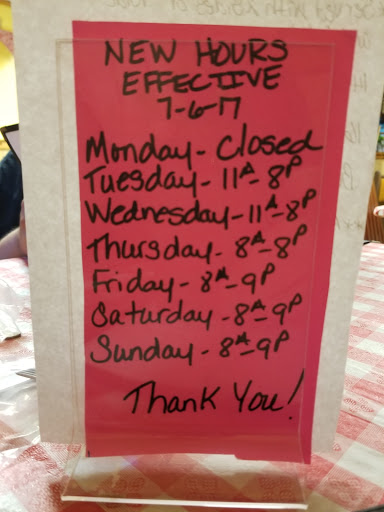 NEW HOURS
EFFECTIVE
7-6-17
Monday - Closed
Tuesday - 11A-8P
Wednesday - 11A-8P
Thursday - 8A-8P
Friday - 8A-9P
Saturday - 8A-9P
Sunday - 8A-9P
Thank You!